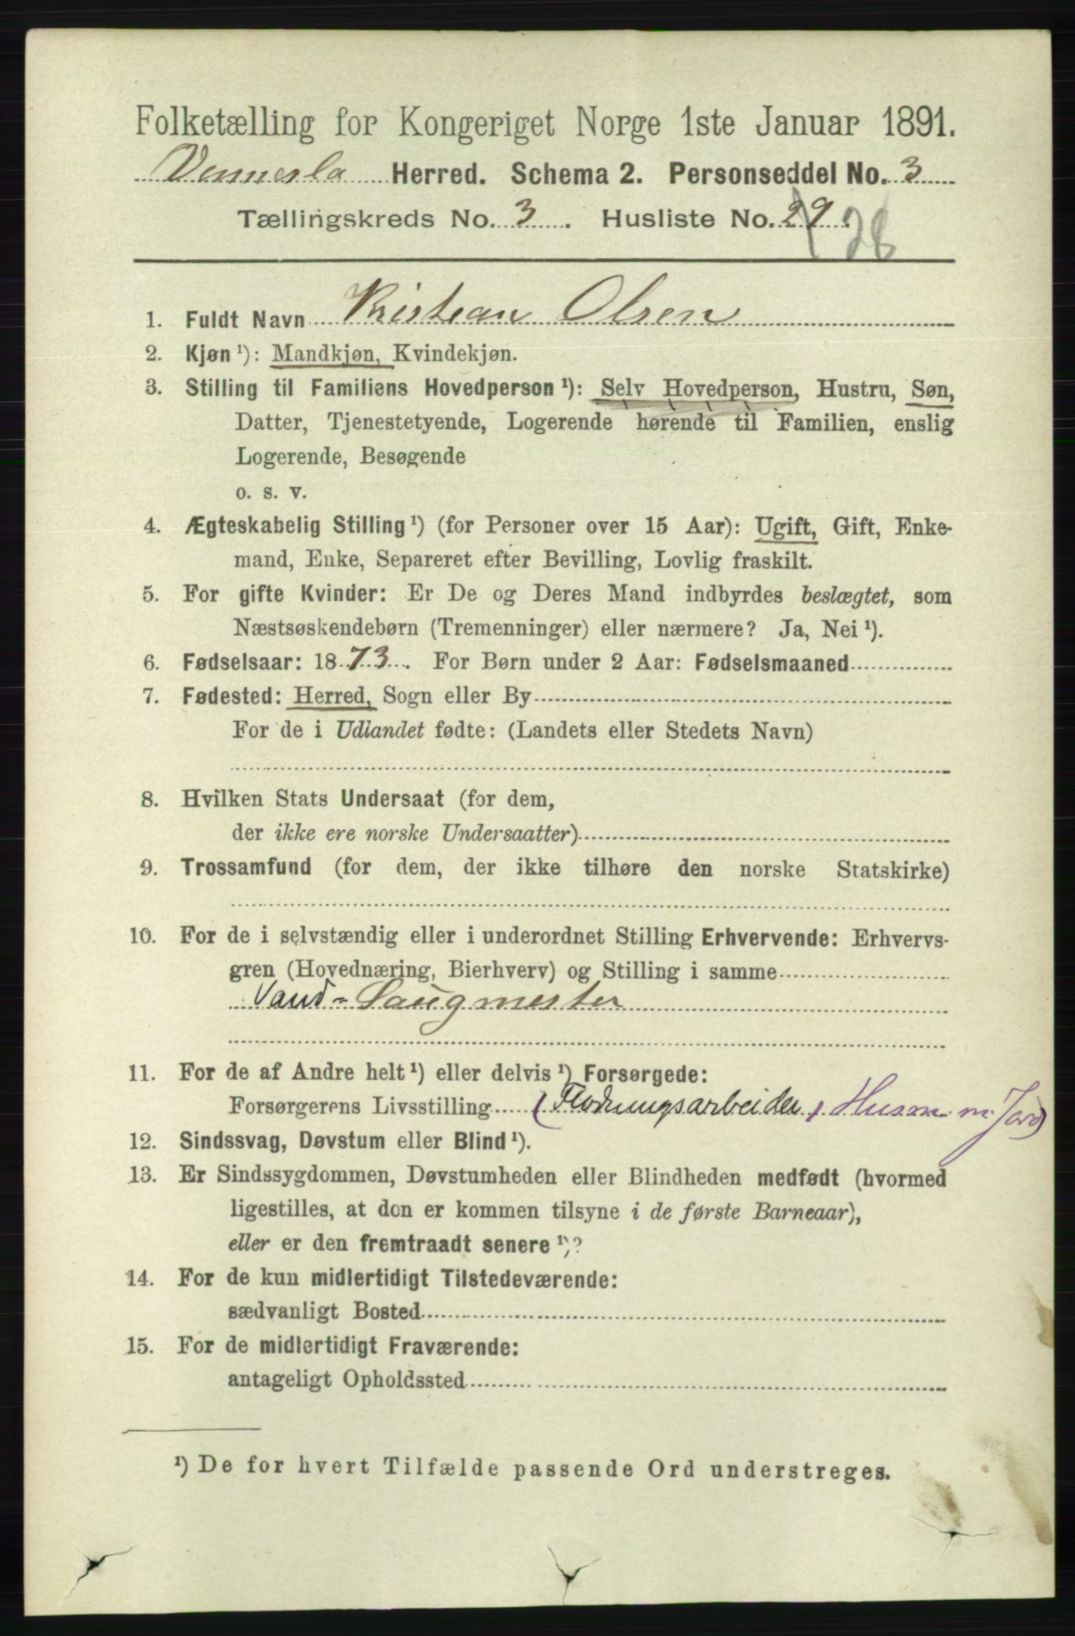 Folketælling for Kongeriget Norge 1ste Januar 1891.
Vennesla Herred. Schema 2. Personseddel No. 3
Tællingskreds No. 3. Husliste No. 29. 28
1. Fuldt Navn Kristean Olsen
2. Kjøn ¹): Mandkjøn, Kvindekjøn.
3. Stilling til Familiens Hovedperson ¹): Selv Hovedperson, Hustru, Søn,
Datter, Tjenestetyende, Logerende hørende til Familien, enslig
Logerende, Besøgende
o. s. v.
4. Ægteskabelig Stilling ¹) (for Personer over 15 Aar): Ugift, Gift, Enke-
mand, Enke, Separeret efter Bevilling, Lovlig fraskilt.
5. For gifte Kvinder: Er De og Deres Mand indbyrdes beslægtet, som
Næstsøskendebørn (Tremenninger) eller nærmere? Ja, Nei ¹).
6. Fødselsaar: 1873. For Børn under 2 Aar: Fødselsmaaned
7. Fødested: Herred, Sogn eller By
For de i Udlandet fødte: (Landets eller Stedets Navn)
8. Hvilken Stats Undersaat (for dem,
der ikke ere norske Undersaatter)
9. Trossamfund (for dem, der ikke tilhøre den norske Statskirke)
10. For de i selvstændig eller i underordnet Stilling Erhvervende: Erhvervs-
gren (Hovednæring, Bierhverv) og Stilling i samme
Vand-Saugmester
11. For de af Andre helt ¹) eller delvis ¹) Forsørgede:
Forsørgerens Livsstilling (Flødningsarbeider, Husm. m. Jord)
12. Sindssvag, Døvstum eller Blind ¹).
13. Er Sindssygdommen, Døvstumheden eller Blindheden medfødt (hvormed
ligestilles, at den er kommen tilsyne i de første Barneaar),
eller er den fremtraadt senere ¹)?
14. For de kun midlertidigt Tilstedeværende:
sædvanligt Bosted
15. For de midlertidigt Fraværende:
antageligt Opholdssted
¹) De for hvert Tilfælde passende Ord understreges.